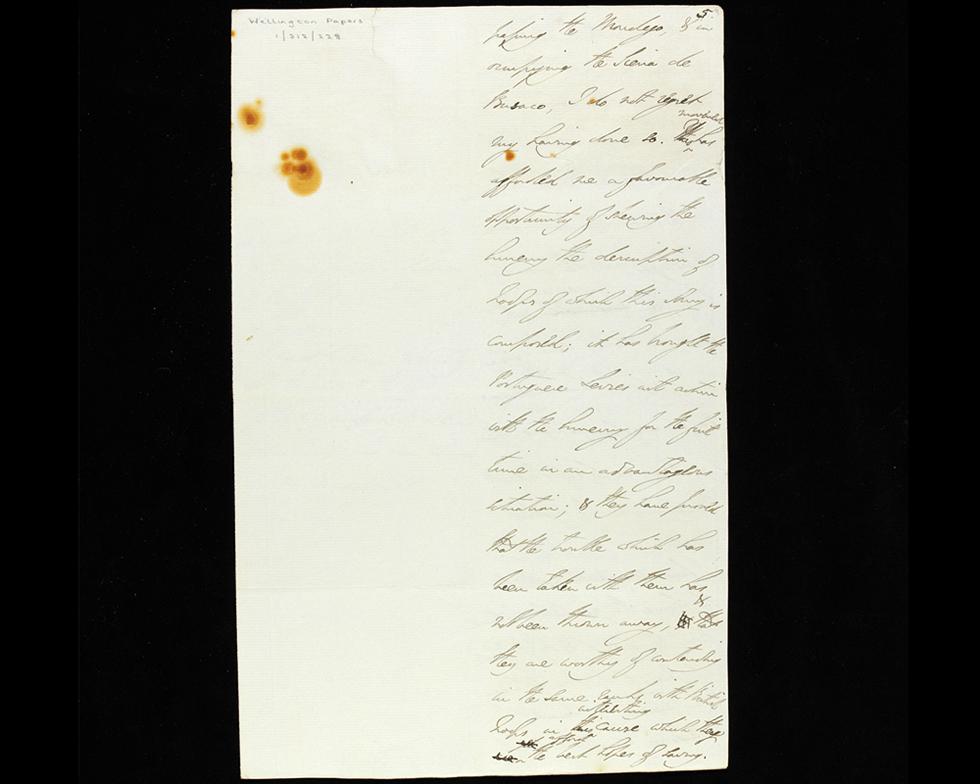 Wellington Papers
1/312/228
5.
passing the Mondego, & in
occupying the Sierra de
Busaco, I do not regret
my having done so. This movement has
afforded me a favourable
opportunity of shewing the
Enemy the description of
Troops of which this Army is
composed; it has brought the
Portuguese Levies into action
with the Enemy for the first
time in an advantageous
situation; & they have proved
that the trouble which has
been taken with them has
not been thrown away, & that
they are worthy of contending
in the same ranks with British
Troops in this interesting cause which they
afford the best hopes of saving.